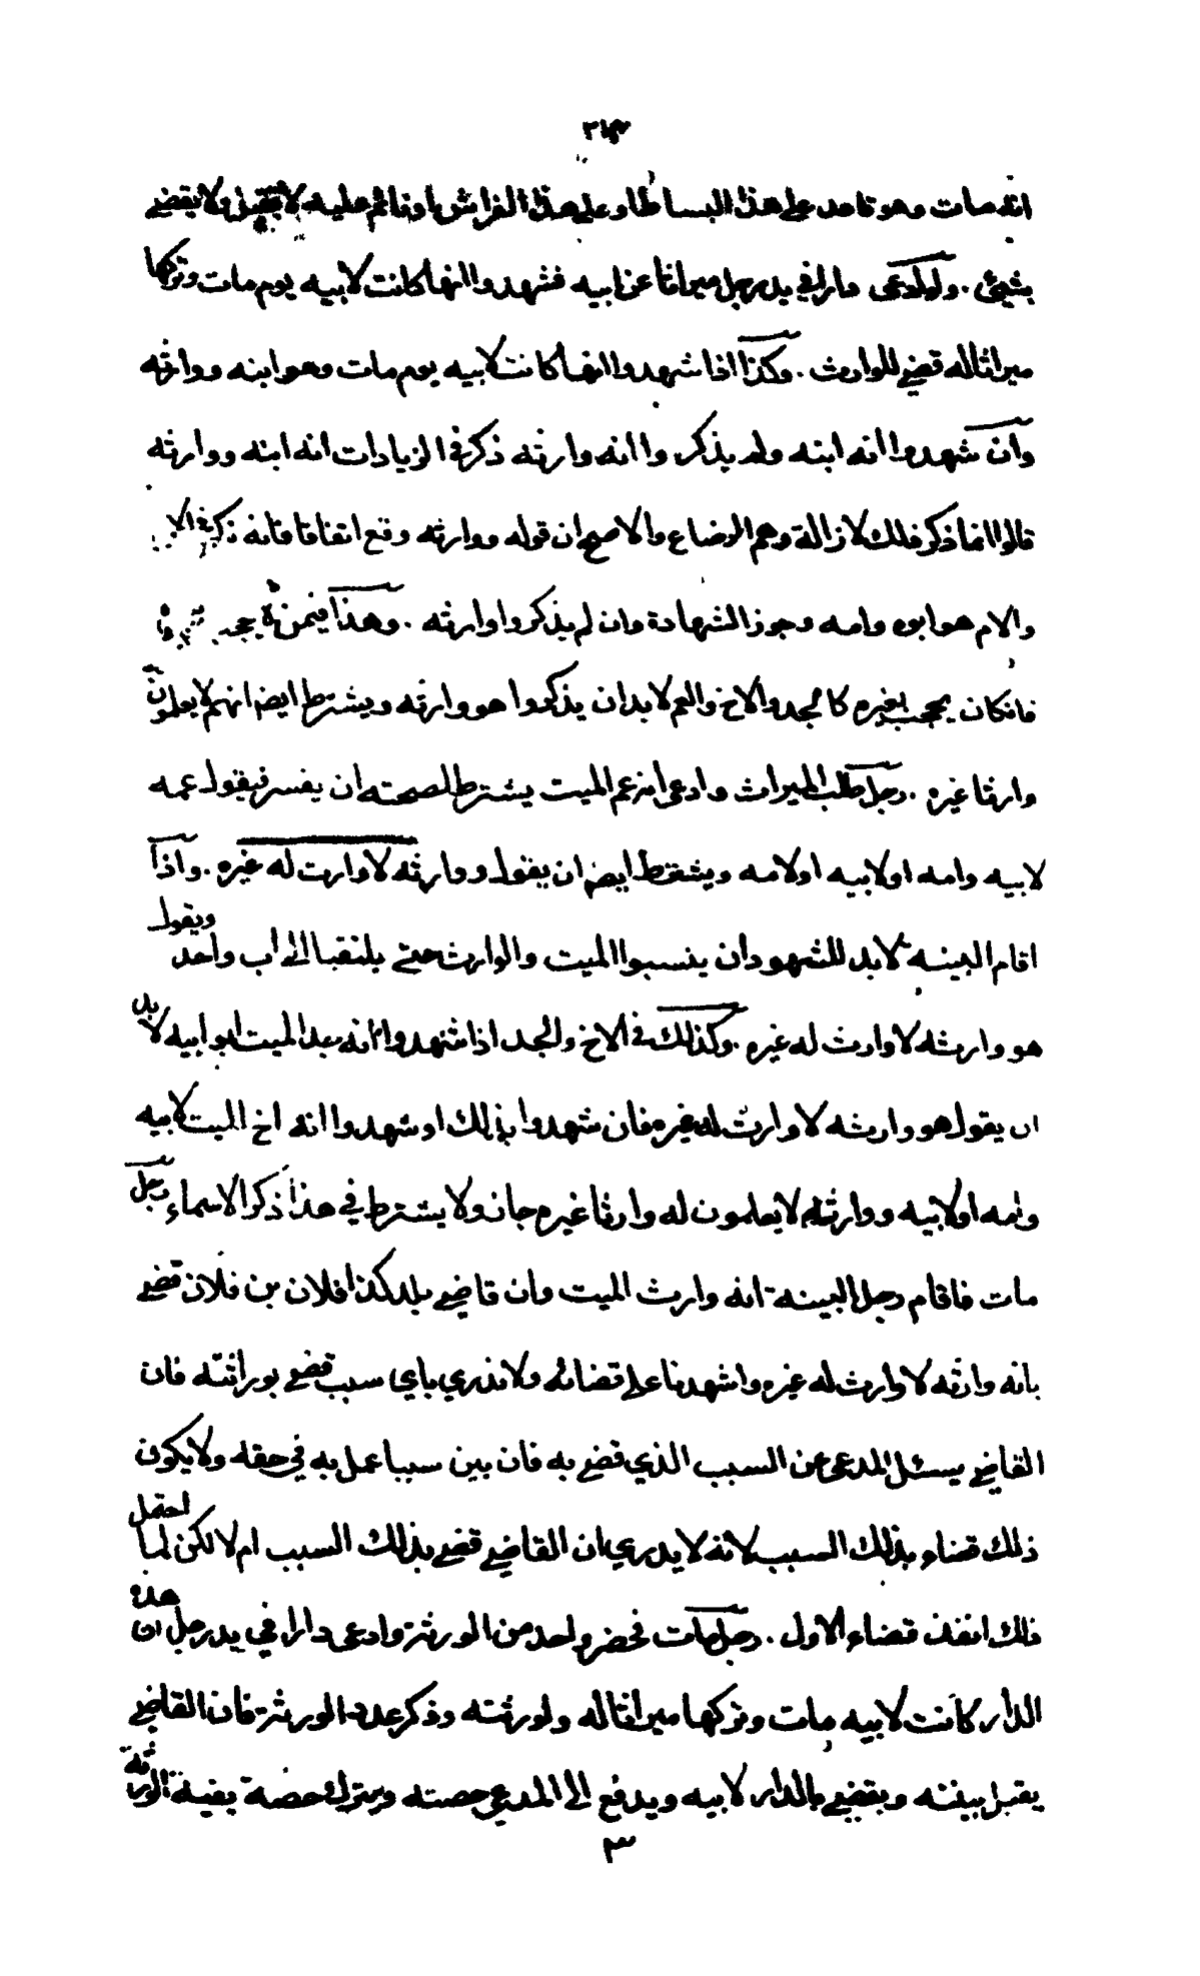 انه مات وهو قاعد على هذا البساط او على هذا الفراش او نائم عليه لا تقبل ولا يقضي
بشيئ . ولو ادعى دارا في يد رجل ميراثا عن ابيه فشهدوا انها كانت لابيه يوم مات وتركها
ميراثا له قضي للوارث . وكذا اذا شهدوا انها كانت لابيه يوم مات وهو ابنه ووارثه
وان شهدوا انه ابنه ولم يذكروا انه وارثه ذكر في الزيادات انه ابنه ووارثه
قالوا انما ذكر ذلك لازالة وهم الرضاع والاصح ان قوله ووارثه وقع اتفاقا فانه ذكر في الاب
والام هو ابوه وامه وجوز الشهادة وان لم يذكروا وارثه . وهذا فيمن لا يحجب
فان كان يحجب بغيره كالجد والاخ والعم لابد ان يذكروا هو وارثه ويشترط ايضا انهم لا يعلمون
وارثا غيره . رجل طلب الميراث وادعى انه عم الميت يشترط لصحته ان يفسر فيقول عمه
لابيه وامه او لابيه او لامه ويشترط ايضا ان يقول ووارثه لا وارث له غيره . واذا
اقام البينة لابد للشهود ان ينسبوا الميت والوارث حتى يلتقيا الى اب واحد ويقول
هو وارثه لا وارث له غيره . وكذلك في الاخ والجد اذا شهدوا انه جد الميت ابو ابيه لا بد
ان يقول هو وارثه لا وارث له غيره فان شهدوا بذلك او شهدوا انه اخ الميت لابيه
وامه او لابيه ووارثه لا يعلمون له وارثا غيره جاز ولا يشترط في هذا ذكر الاسماء رجل
مات فاقام رجل البينة انه وارث الميت وان قاضي بلد كذا فلان بن فلان قضى
بانه وارثه لا وارث له غيره واشهدنا على قضائه ولا ندري باي سبب قضى بوراثته فان
القاضي يسئل المدعي عن السبب الذي قضى به فان بين سببا عمل به في حقه ولا يكون
ذلك قضاء بذلك السبب لانه لا يدري ان القاضي قضى بذلك السبب ام لا لكن لما احتمل
ذلك انفذ قضاء الاول . رجل مات فحضر واحد من الورثة وادعى دارا في يد رجل ان هذه
الدار كانت لابيه مات وتركها ميراثا له ولورثته وذكر عدد الورثة فان القاضي
يقبل بينته ويقضي بالدار لابيه ويدفع الى المدعي حصته ويترك حصة بقية الورثة
٣